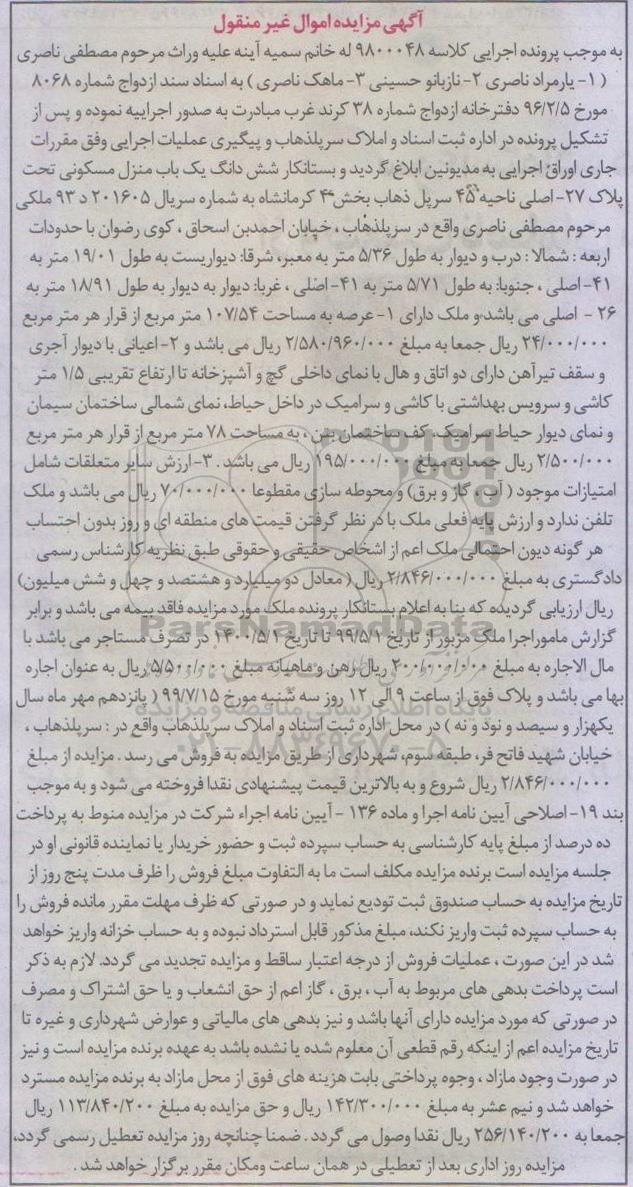 آگهی مزایده اموال غیر منقول
به موجب پرونده اجرایی کلاسه ۹۸۰۰۰۴۸ له خانم سمیه آینه علیه وراث مرحوم مصطفی ناصری
( ۱- یارمراد ناصری ۲- نازبانو حسینی ۳- ماهک ناصری ) به اسناد سند ازدواج شماره ۸۰۶۸
مورخ ۹۶/۲/۵ دفترخانه ازدواج شماره ۳۸ کرند غرب مبادرت به صدور اجراییه نموده و پس از
تشکیل پرونده در اداره ثبت اسناد و املاک سرپلذهاب و پیگیری عملیات اجرایی وفق مقررات
جاری اوراق اجرایی به مدیونین ابلاغ گردید و بستانکار شش دانگ یک باب منزل مسکونی تحت
پلاک ۲۷- اصلی ناحیه ۴۵ سرپل ذهاب بخش ۴ کرمانشاه به شماره سریال ۲۰۱۶۰۵ د ۹۳ ملکی
مرحوم مصطفی ناصری واقع در سرپلذهاب ، خیابان احمدبن اسحاق ، کوی رضوان با حدودات
اربعه : شمالا : درب و دیوار به طول ۵/۳۶ متر به معبر، شرقا: دیواریست به طول ۱۹/۰۱ متر به
۴۱- اصلی ، جنوبا: به طول ۵/۷۱ متر به ۴۱- اصلی ، غربا: دیوار به دیوار به طول ۱۸/۹۱ متر به
۲۶ - اصلی می باشد و ملک دارای ۱- عرصه به مساحت ۱۰۷/۵۴ متر مربع از قرار هر متر مربع
۲۴/۰۰۰/۰۰۰ ریال جمعا به مبلغ ۲/۵۸۰/۹۶۰/۰۰۰ ریال می باشد و ۲- اعیانی با دیوار آجری
و سقف تیرآهن دارای دو اتاق و هال با نمای داخلی گچ و آشپزخانه تا ارتفاع تقریبی ۱/۵ متر
کاشی و سرویس بهداشتی با کاشی و سرامیک در داخل حیاط، نمای شمالی ساختمان سیمان
و نمای دیوار حیاط سرامیک، کف ساختمان بتن ، به مساحت ۷۸ متر مربع از قرار هر متر مربع
۲/۵۰۰/۰۰۰ ریال جمعا به مبلغ ۱۹۵/۰۰۰/۰۰۰ ریال می باشد . ۳- ارزش سایر متعلقات شامل
امتیازات موجود ( آب ، گاز و برق ) و محوطه سازی مقطوعا ۷۰/۰۰۰/۰۰۰ ریال می باشد و ملک
تلفن ندارد و ارزش پایه فعلی ملک با در نظر گرفتن قیمت های منطقه ای و روز بدون احتساب
هر گونه دیون احتمالی ملک اعم از اشخاص حقیقی و حقوقی طبق نظریه کارشناس رسمی
دادگستری به مبلغ ۲/۸۴۶/۰۰۰/۰۰۰ ریال ( معادل دو میلیارد و هشتصد و چهل و شش میلیون)
ریال ارزیابی گردیده که بنا به اعلام بستانکار پرونده ملک مورد مزایده فاقد بیمه می باشد و برابر
گزارش ماموراجرا ملک مزبور از تاریخ ۹۹/۵/۱ تا تاریخ ۱۴۰۰/۵/۱ در تصرف مستاجر می باشد با
مال الاجاره به مبلغ ۲۰۰/۰۰۰/۰۰۰ ریال رهن و ماهیانه مبلغ ۵/۵۰۰/۰۰۰ ریال به عنوان اجاره
بها می باشد و پلاک فوق از ساعت ۹ الی ۱۲ روز سه شنبه مورخ ۹۹/۷/۱۵ ( پانزدهم مهر ماه سال
یکهزار و سیصد و نود و نه ) در محل اداره ثبت اسناد و املاک سرپلذهاب واقع در : سرپلذهاب ،
خیابان شهید فاتح فر، طبقه سوم، شهرداری از طریق مزایده به فروش می رسد . مزایده از مبلغ
۲/۸۴۶/۰۰۰/۰۰۰ ریال شروع و به بالاترین قیمت پیشنهادی نقدا فروخته می شود و به موجب
بند ۱۹- اصلاحی آیین نامه اجرا و ماده ۱۳۶ - آیین نامه اجراء شرکت در مزایده منوط به پرداخت
ده درصد از مبلغ پایه کارشناسی به حساب سپرده ثبت و حضور خریدار یا نماینده قانونی او در
جلسه مزایده است برنده مزایده مکلف است ما به التفاوت مبلغ فروش را ظرف مدت پنج روز از
تاریخ مزایده به حساب صندوق ثبت تودیع نماید و در صورتی که ظرف مهلت مقرر مانده فروش را
به حساب سپرده ثبت واریز نکند، مبلغ مذکور قابل استرداد نبوده و به حساب خزانه واریز خواهد
شد در این صورت ، عملیات فروش از درجه اعتبار ساقط و مزایده تجدید می گردد. لازم به ذکر
است پرداخت بدهی های مربوط به آب ، برق ، گاز اعم از حق انشعاب و یا حق اشتراک و مصرف
در صورتی که مورد مزایده دارای آنها باشد و نیز بدهی های مالیاتی و عوارض شهرداری و غیره تا
تاریخ مزایده اعم از اینکه رقم قطعی آن معلوم شده یا نشده باشد به عهده برنده مزایده است و نیز
در صورت وجود مازاد ، وجوه پرداختی بابت هزینه های فوق از محل مازاد به برنده مزایده مسترد
خواهد شد و نیم عشر به مبلغ ۱۴۲/۳۰۰/۰۰۰ ریال و حق مزایده به مبلغ ۱۱۳/۸۴۰/۲۰۰ ریال
جمعا به ۲۵۶/۱۴۰/۲۰۰ ریال نقدا وصول می گردد . ضمنا چنانچه روز مزایده تعطیل رسمی گردد،
مزایده روز اداری بعد از تعطیلی در همان ساعت ومکان مقرر برگزار خواهد شد .
ParsNamadData
پایگاه اطلاع رسانی مناقصه و مزایده
۰۲۱-۸۸۳۴۹۶۷۰-۵